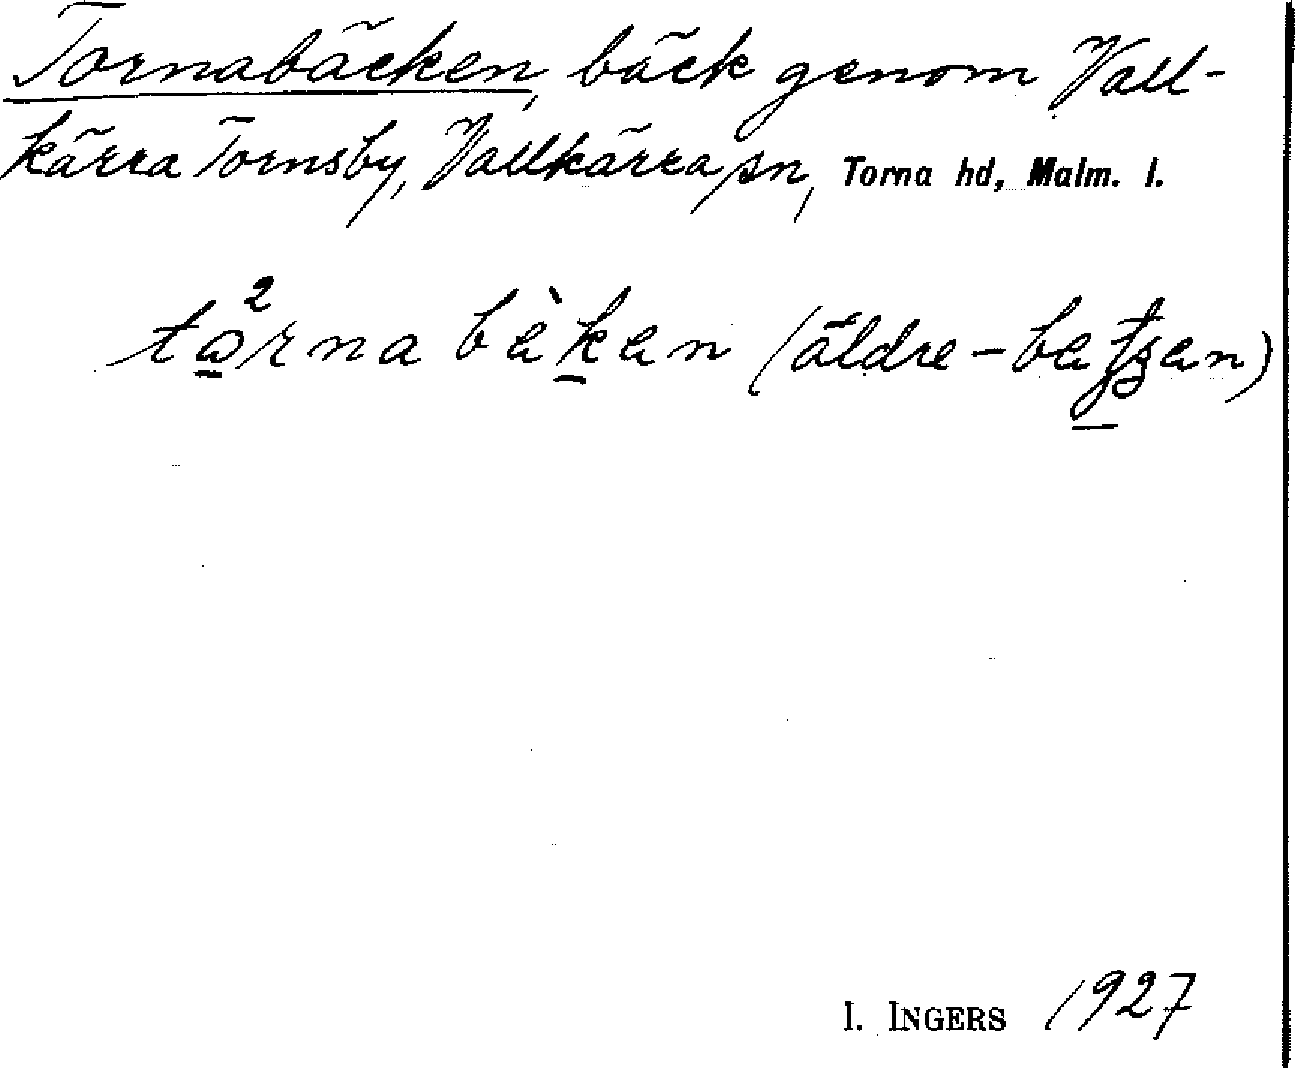 Tornabäcken, bäck genom Vall-
kärra Tornsby, Vallkärra sn, Torna hd, Malm. l.
tɷ̠²rna bèk̠en (äldre -be
I. INGERS 1927